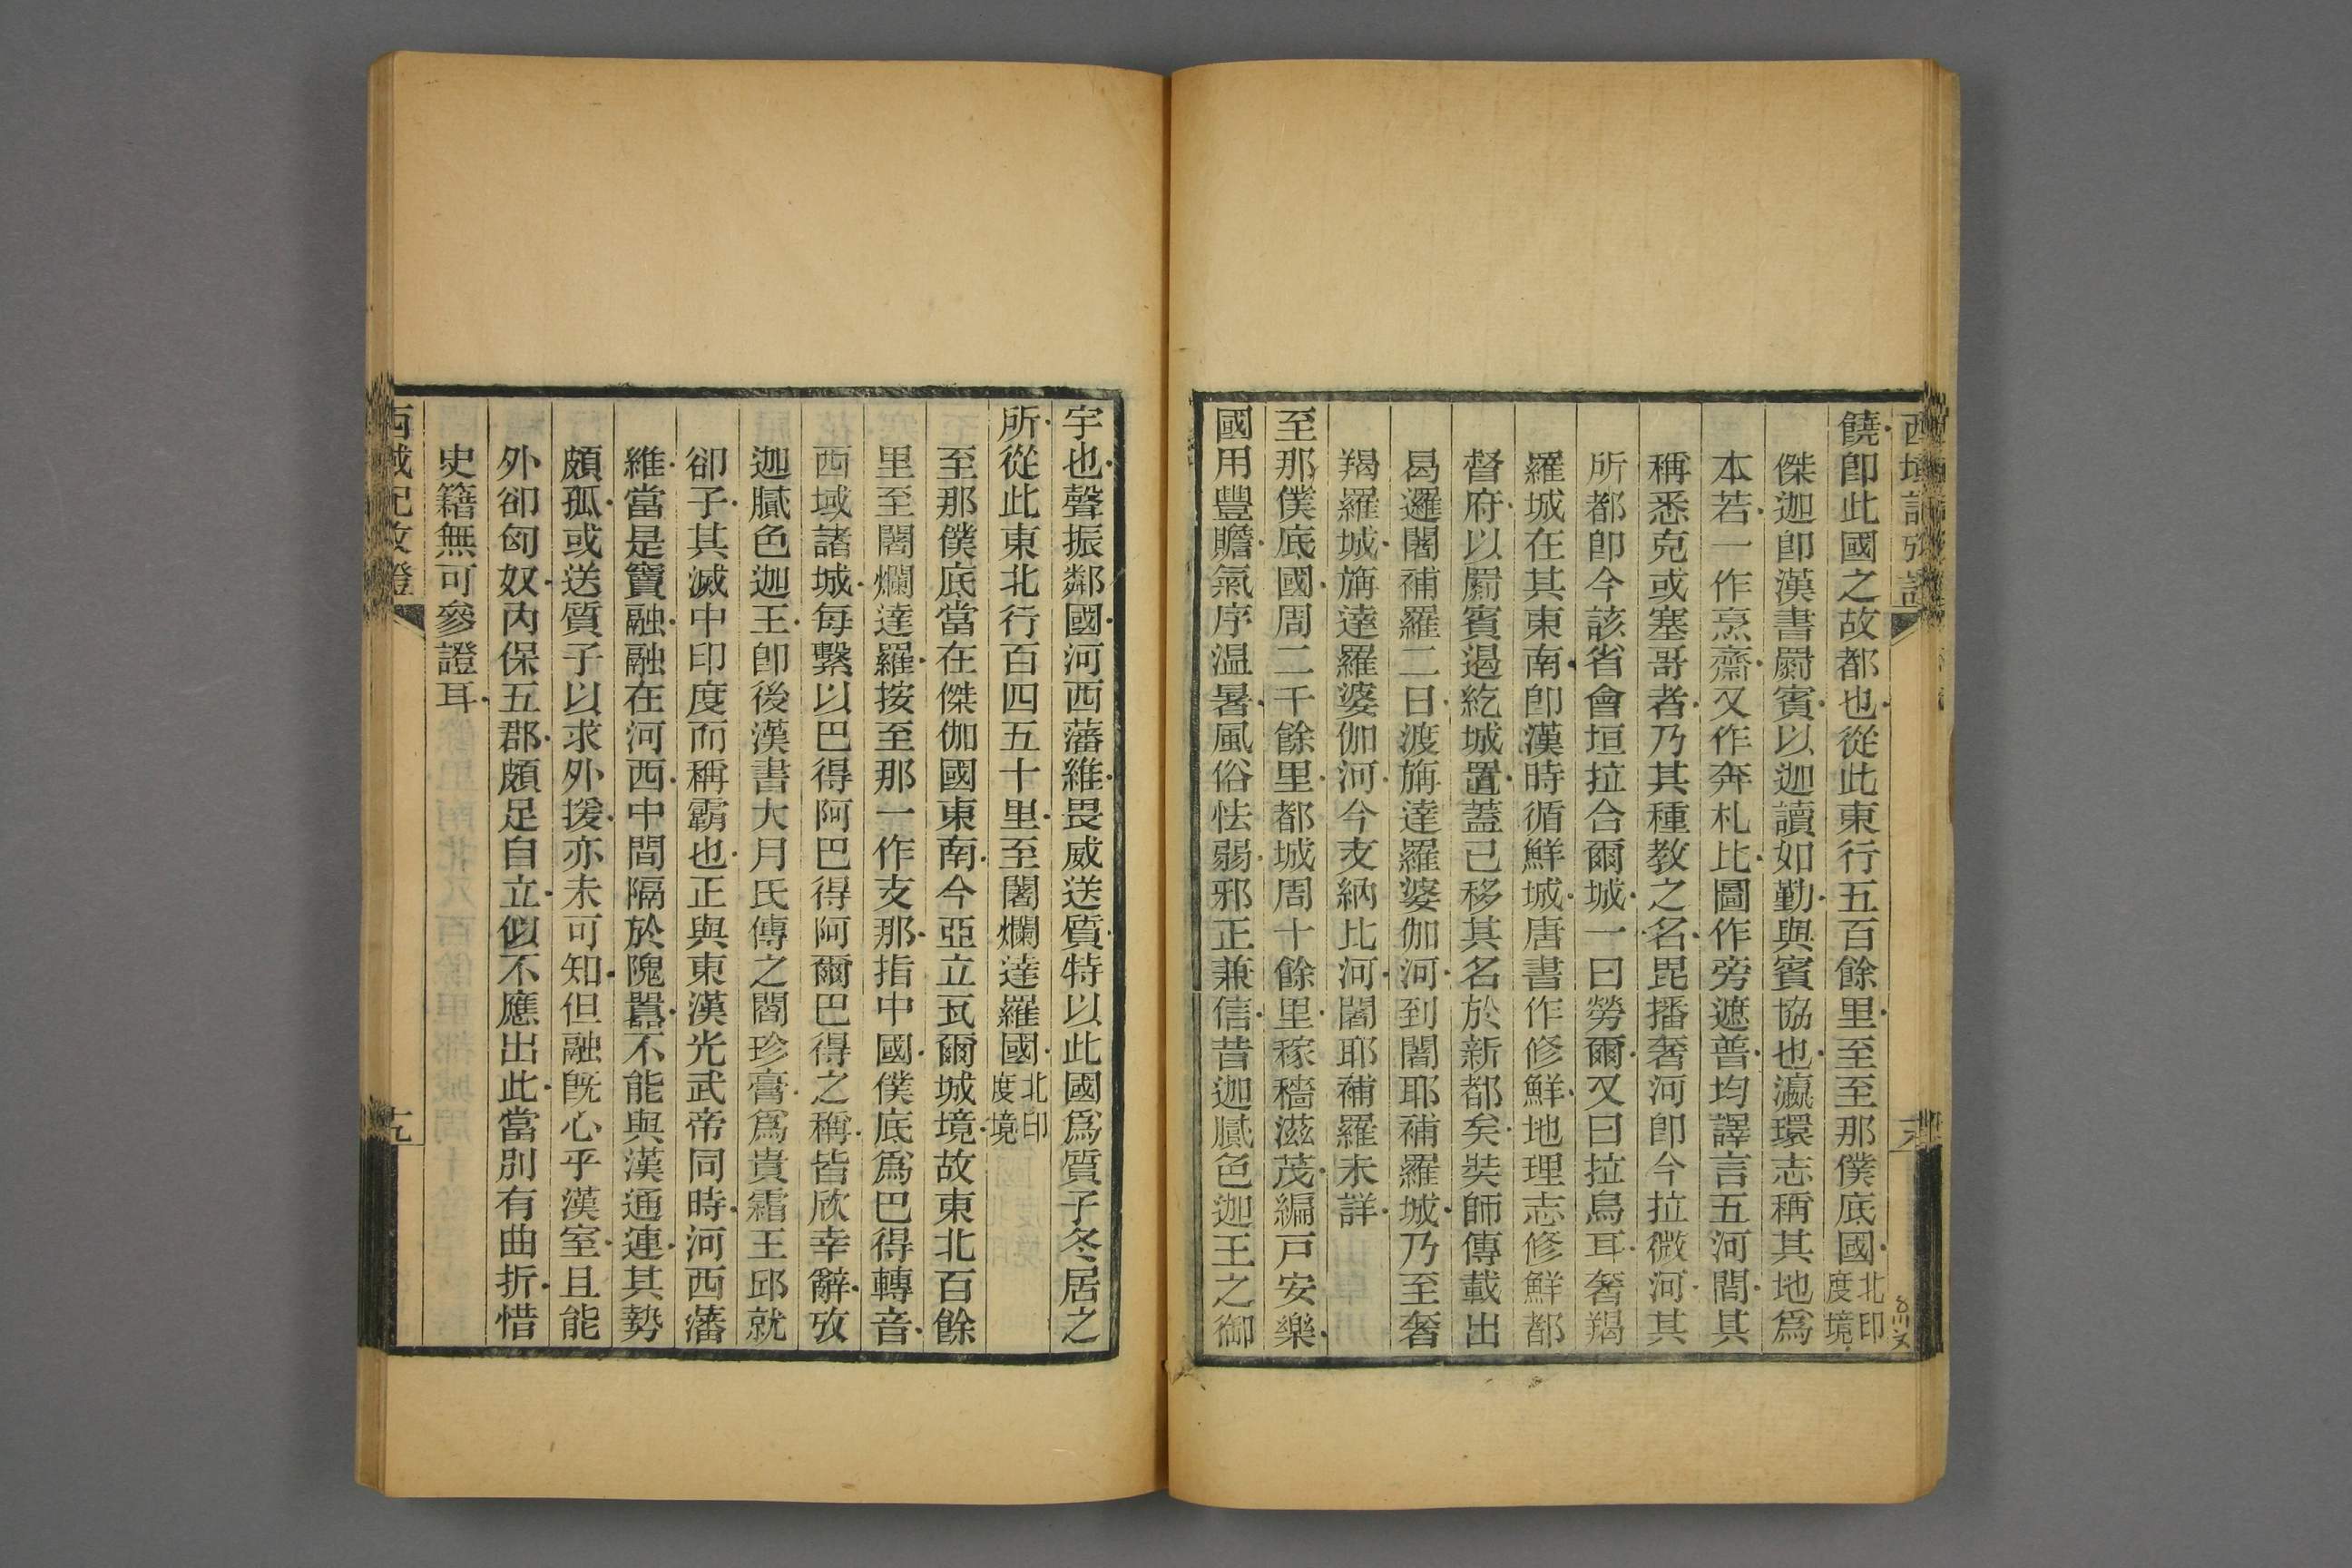 饒卽此國之故都也從此東行五百餘里至至那僕底國北印度境
傑迦卽漢書罽賓以迦讀如勤與賓協也瀛環志稱其地爲
本若一作烹齋又作奔札比圖作旁遮普均譯言五河間其
稱悉克或塞哥者乃其種教之名毘播奢河卽今拉微河其
所都卽今該省會垣拉合爾城一曰勞爾又曰拉烏耳奢羯
羅城在其東南卽漢時循鮮城唐書作修鮮地理志修鮮都
督府以罽賓遏紇城置蓋已移其名於新都矣奘師傳載出
曷邏闍補羅二日渡旃達羅婆伽河到闍耶補羅城乃至奢
羯羅城旃達羅婆伽河今支納比河闍耶補羅未詳
至那僕底國周二千餘里都城周十餘里稼穡滋茂編戸安樂
國用豐贍氣序温暑風俗怯弱邪正兼信昔迦膩色迦王之御
宇也聲振鄰國河西藩維畏威送質特以此國爲質子冬居之
所從此東北行百四五十里至闍爛達羅國北印度境
至那僕底當在傑伽國東南今亞立瓦爾城境故東北百餘
里至闍爛達羅按至那一作支那指中國僕底爲巴得轉音
西域諸城每繫以巴得阿巴得阿爾巴得之稱皆欣幸辭攷
迦膩色迦王卽後漢書大月氏傳之閻珍膏爲貴霜王邱就
卻子其滅中印度而稱霸也正與東漢光武帝同時河西藩
維當是竇融融在河西中間隔於隗囂不能與漢通連其勢
頗孤或送質子以求外援亦未可知但融旣心乎漢室且能
外卻匈奴內保五郡頗足自立似不應出此當別有曲折惜
史籍無可參證耳
西域記攷證
十九